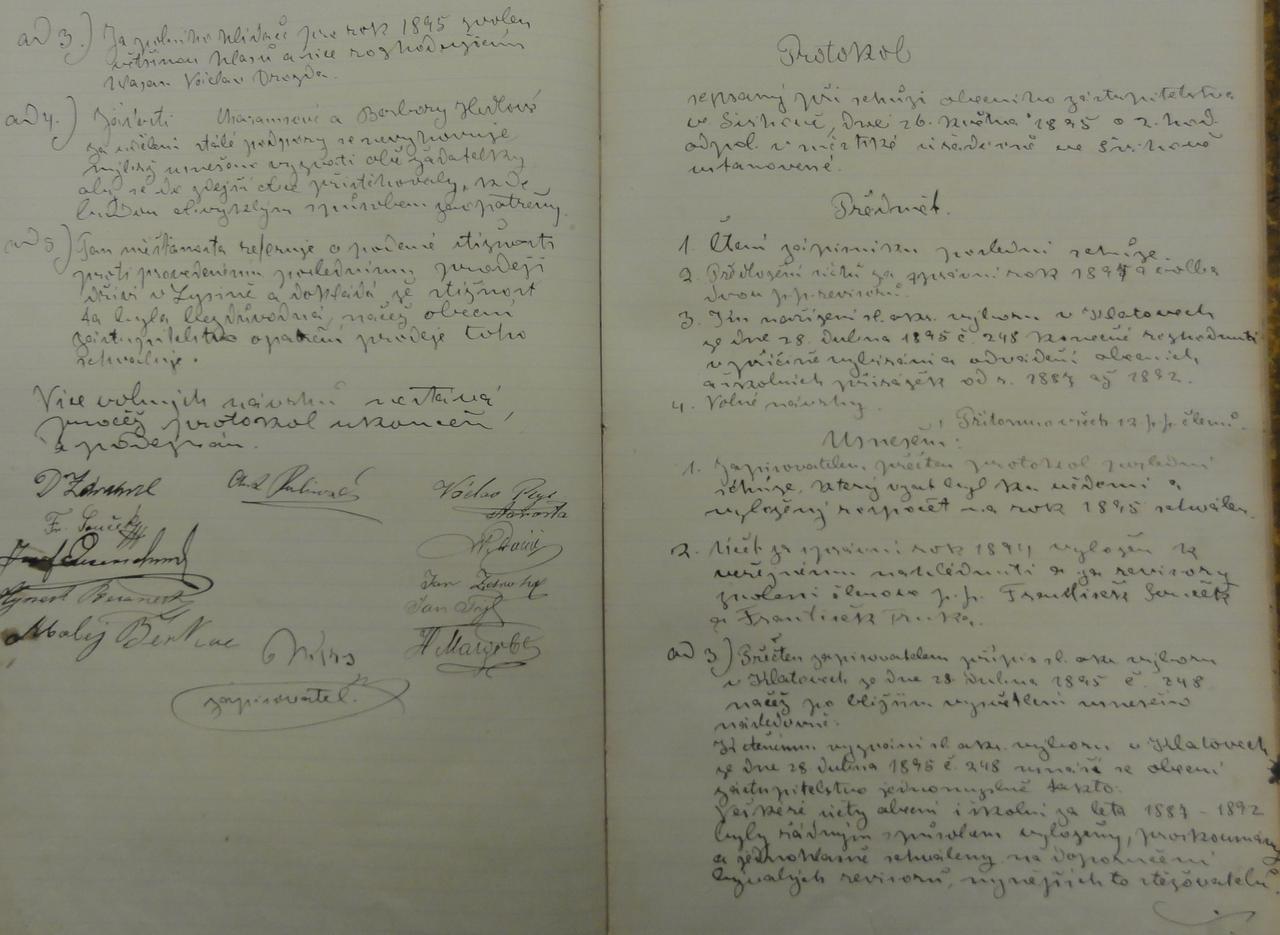 ad 3.) Za polního hlídače pro rok 1895 zvolen
většinou hlasů a sice rozhodujícím
hlasem Václav Drozda.
ad 4.) Žádosti a Barbory Hedlové
za udělení stálé podpory se nevyhovuje
nýbrž usnešeno vyzvati obě žadatelky
aby se do zdejší obce přistěhovaly, kde
budou obvyklým spůsobem zaopatřeny.
ad 5) Pan měšťanosta referuje o podané stížnosti
proti provedenému poslednímu prodeji
dříví v Lysině a dokládá že stížnost
ta byla bezdůvodná, načež obecní
zastupitelstvo opatření prodeje toho
schvaluje.
Více volných návrhů nestává
pročež protokol ukončen
a podepsán.
Václav
starosta
Fr. Souček
Jan
Jan
zapisovatel.
Protokol
sepsaný při schůzi obecního zastupitelstva
ve Strhově, dne 26. května 1895 o 2. hod.
odpol. v místnosti úřadovně ve Strhově
ustanovené.
Předmět.
1. Čtení zápisníku poslední schůze.
2. Předložení účtů za správní rok 1894 a volba
dvou p.p. revisorů.
3. Dle nařízení sl. okr. výboru v Klatovech
ze dne 28. dubna 1895 č. 248 konečné rozhodnutí
v příčině vybírání a odvádění obecních
a školních přirážek od r. 1887 až 1892.
4. Volné návrhy.
Přítomno všech 12 p.p. členů.
Usnešení:
1. Zapisovatelem přečten protokol poslední
schůze, který vzat byl ku vědomí a
vyložený rozpočet na rok 1895 schválen.
2. Účet za správní rok 1894 vyložen k
veřejnému nahlédnutí a za revisory
zvoleni členové p.p. František Souček
a František Truka.
ad 3) Přečten zapisovatelem přípis sl. okr. výboru
v Klatovech ze dne 28 dubna 1895 č. 248
načež po bližším vysvětlení usnešeno
následovně:
K ctěnému vyzvání sl. okr. výboru v Klatovech
ze dne 28 dubna 1895 č. 248 usnáší se obecní
zastupitelstvo jednomyslně takto:
Veškeré účty obecní i školní za léta 1887 - 1892
byly řádným spůsobem vyloženy, proskoumány
a jednohlasně schváleny na doporučení
bývalých revisorů, nynějších to stěžovatelů.